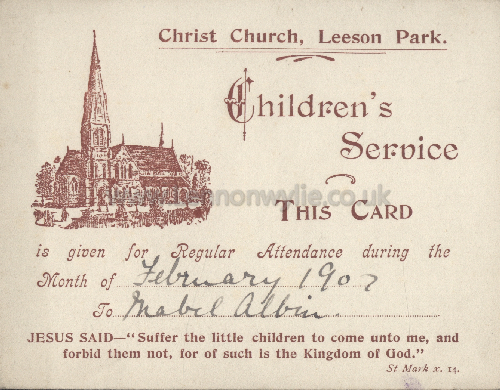 Christ Church, Leeson Park.
Children's
Service
THIS CARD
is given for Regular Attendance during the
Month of February 1907
To Mabel Albin.
JESUS SAID—"Suffer the little children to come unto me, and
forbid them not, for of such is the Kingdom of God."
St Mark x. 14.